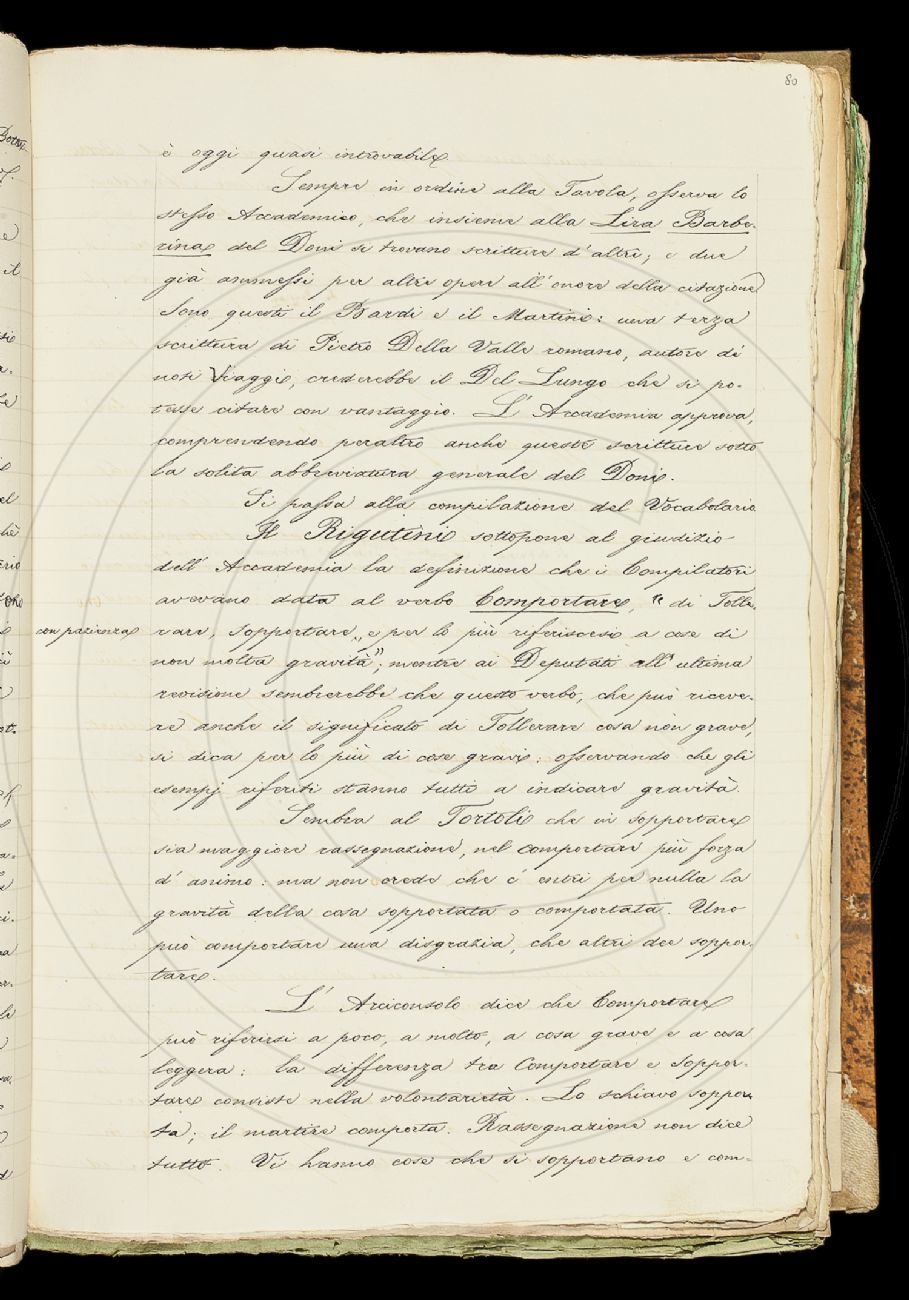 80
è oggi quasi introvabile
Sempre in ordine alla Tavola, osserva lo
stesso Accademico, che insieme alla Lira Barbe-
rina del Doni si trovano scritture d'altri; e due
già ammessi per altre opere all'onore della citazione
Sono questi il Bardi e il Martini: una terza
scrittura di Pietro Della Valle romano, autore di
noti Viaggi, crederebbe il Del Lungo che si po-
tesse citare con vantaggio. L'Accademia approva,
comprendendo peraltro anche queste scritture sotto
la solita abbreviatura generale del Doni.
Si passa alla compilazione del Vocabolario
Il Rigutini sottopone al giudizio
dell'Accademia la definizione che i Compilatori
avevano data al verbo Comportare, "di Tolle-
con pazienza
rare, Sopportare, e per lo più riferiscesi a cose di
non molta gravità"; mentre ai Deputati all'ultima
revisione sembrerebbe che questo verbo, che può riceve-
re anche il significato di Tollerare cosa non grave,
si dica per lo più di cose gravi: osservando che gli
esempj riferiti stanno tutti a indicare gravità.
Sembra al Tortoli che in sopportare
sia maggiore rassegnazione, nel comportare più forza
d'animo: ma non crede che c'entri per nulla la
gravità della cosa sopportata o comportata. Uno
può comportare una disgrazia, che altri dee soppor-
tare.
L'Arciconsolo dice che Comportare
può riferirsi a poco, a molto, a cosa grave e a cosa
leggera: la differenza tra Comportare e Soppor-
tare consiste nella volontarietà. Lo schiavo soppor-
ta; il martire comporta. Rassegnazione non dice
tutto. Vi hanno cose che si sopportano e com-